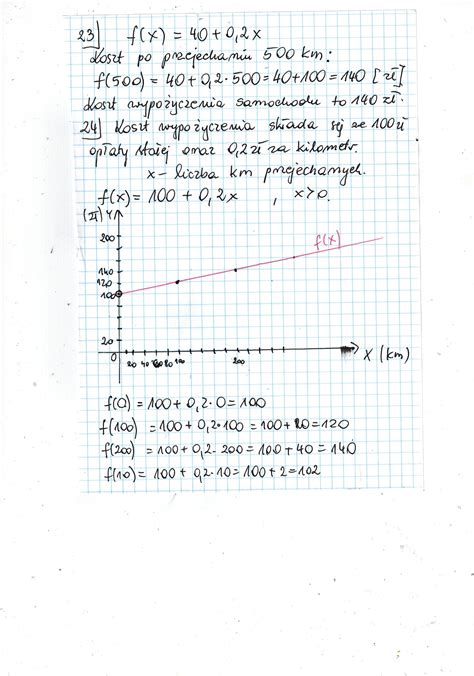 23) f(x) = 40 + 0,2x
Koszt po przejechaniu 500 km:
f(500) = 40 + 0,2·500 = 40 + 100 = 140 [zł]
Koszt wypożyczenia samochodu to 140 zł.
24) Koszt wypożyczenia składa się ze 100 zł
opłaty stałej oraz 0,2 zł za kilometr.
x – liczba km przejechanych.
f(x) = 100 + 0,2x , x>0.
(zł) Y
200
f(x)
140
120
100
20
0 20 40 60 80 100 200 X (km)
f(0) = 100 + 0,2·0 = 100
f(100) = 100 + 0,2·100 = 100 + 20 = 120
f(200) = 100 + 0,2·200 = 100 + 40 = 140
f(10) = 100 + 0,2·10 = 100 + 2 = 102